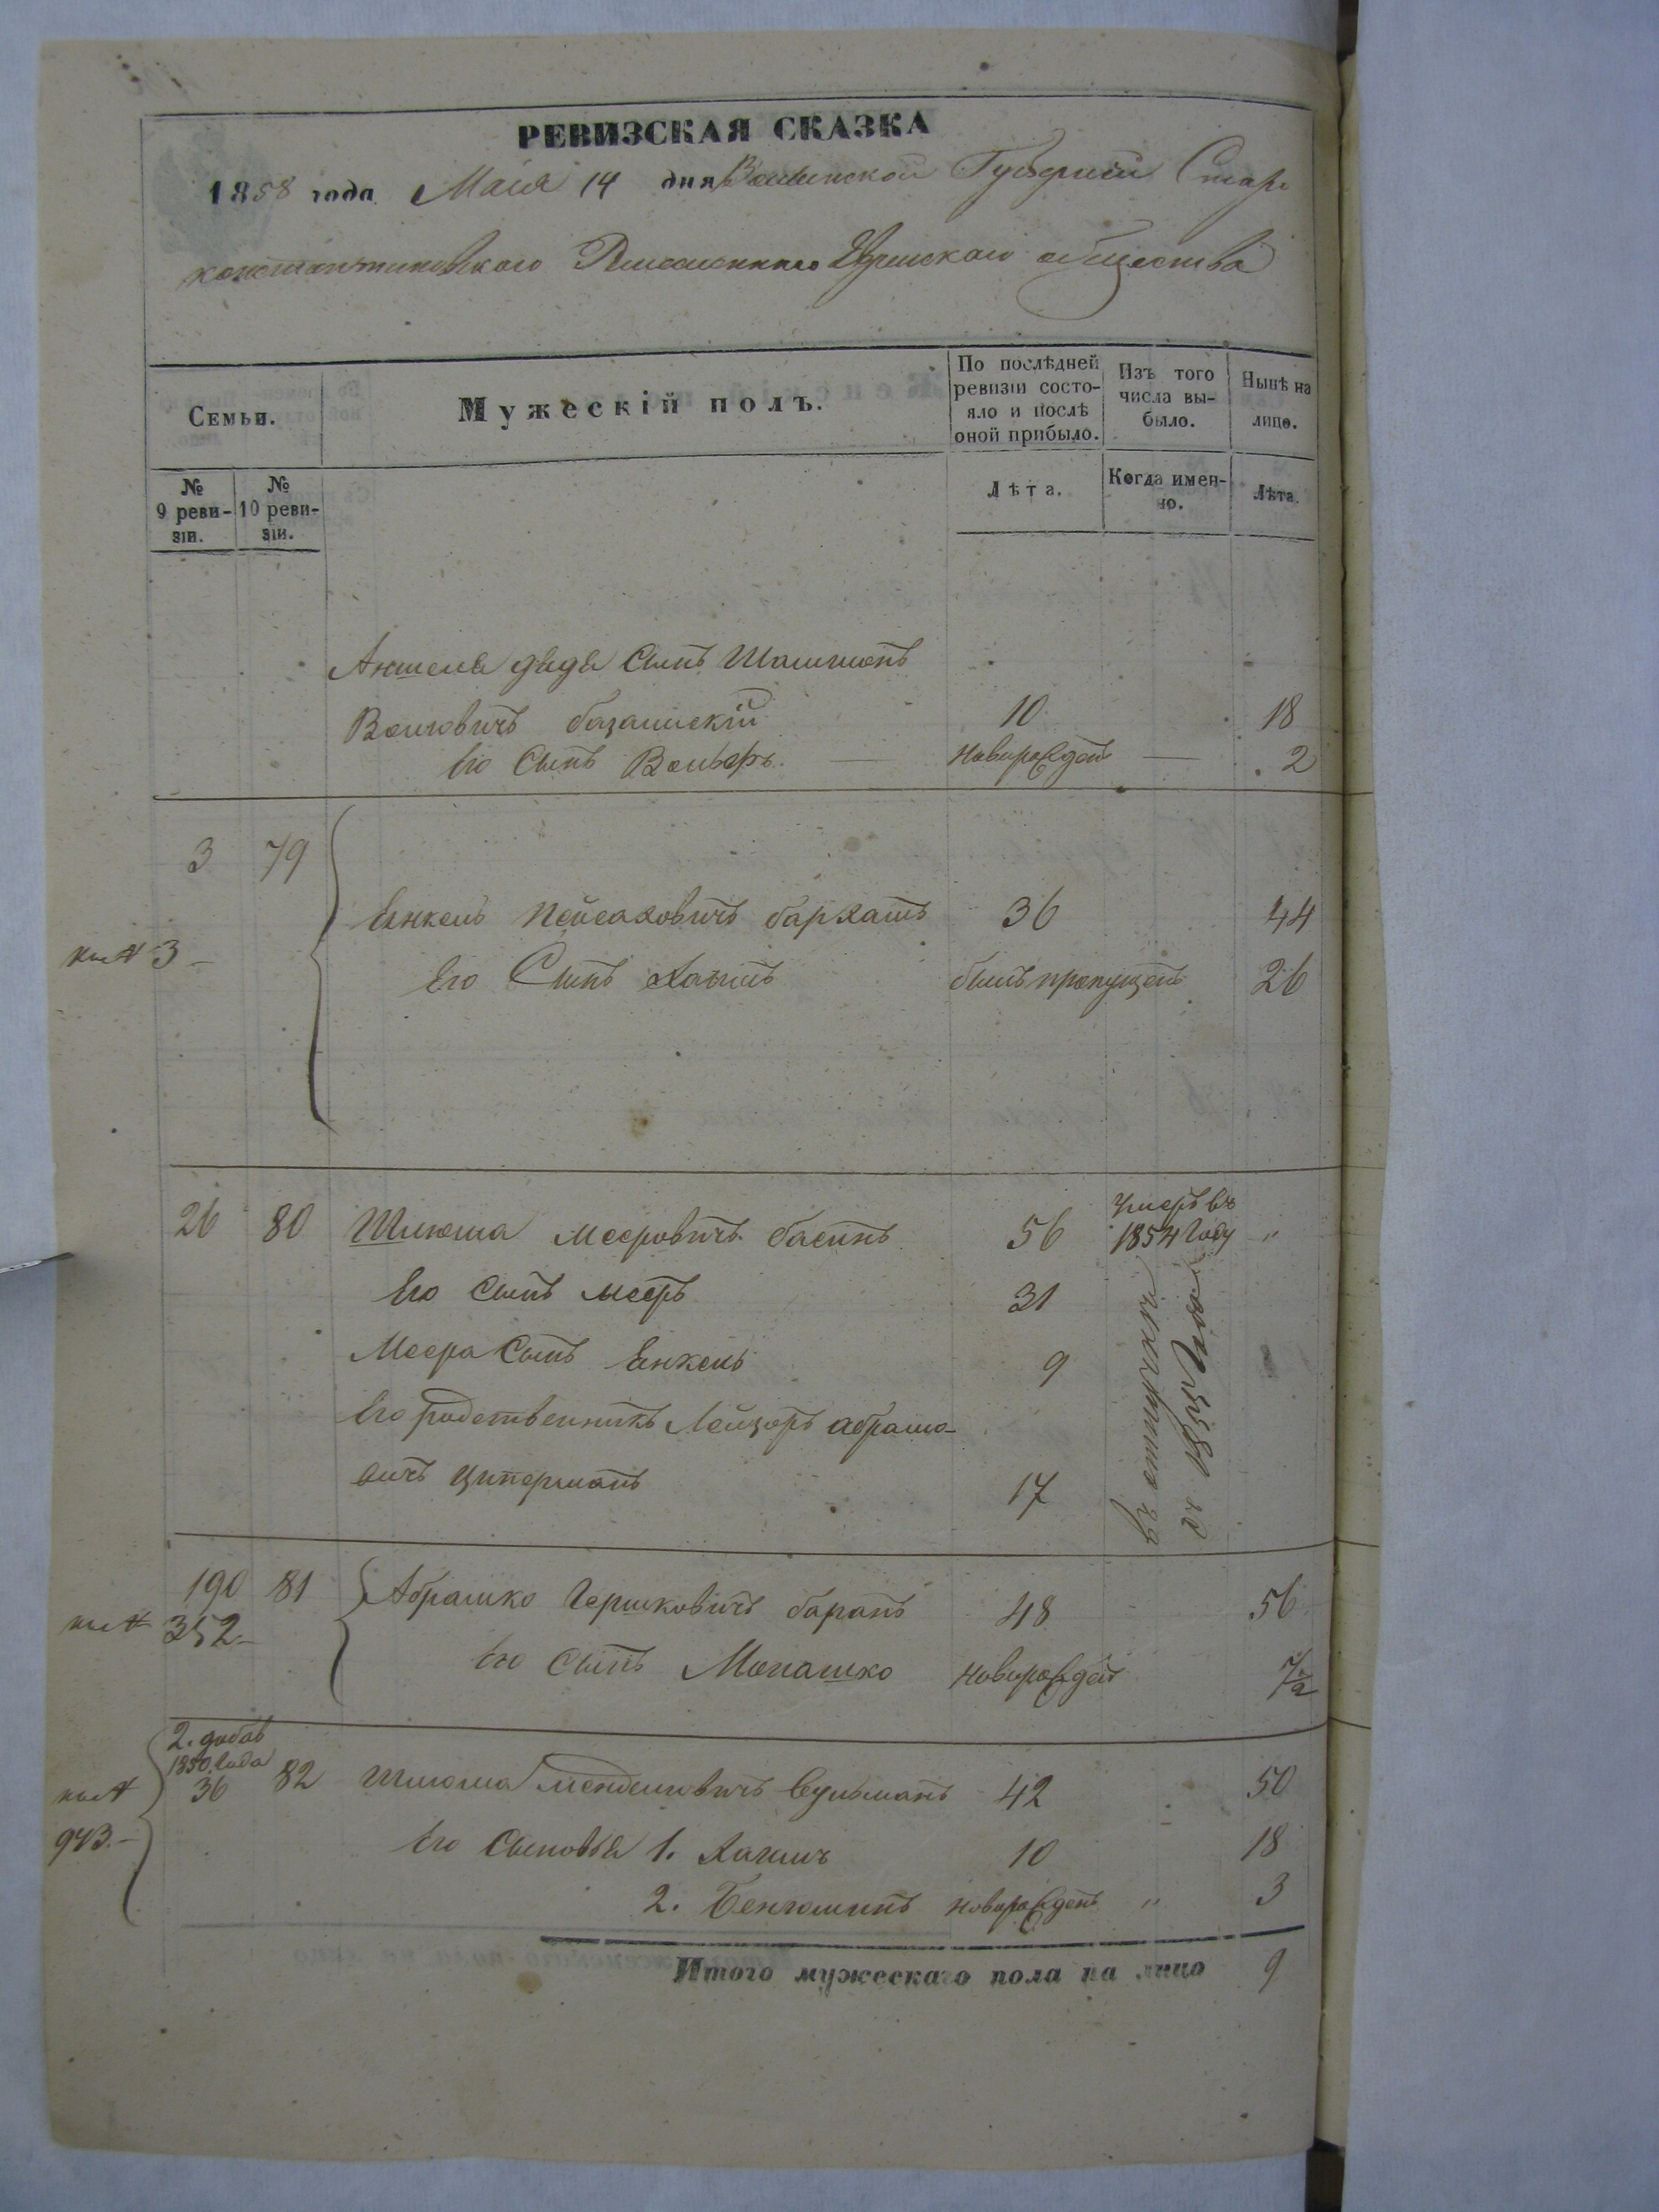 РЕВИЗСКАЯ СКАЗКА
1858 года Маия 14 дня Волынской Губернии Старо
константиновского Еврейскаго общества
Семьи.
Мужескій полъ.
По послѣдней ревизіи состо-
яло и послѣ оной прибыло.
Изъ того числа вы-
было.
Нынѣ на лицо.
№ 9 реви-
зіи.
№ 10 реви-
зіи.
Лѣта.
Когда имен-
но.
Лѣта.
Аншеля дяди Сынъ
Волковичъ 10 18
Его Сынъ новорожденъ 2
3 79
Янкель Пейсаховичъ бархатъ 36 44
3
Его Сынъ Хаимъ былъ пропущенъ 26
26 80 Шлюма Мееровичъ басинъ 56 Умеръ въ
1854 Году "
Его Сынъ Мееръ 31
Меера Сынъ Янкель 9
Его родственникъ Лейзоръ абрамо-
вичъ Циперманъ 17
въ отлучкѣ
съ 1855 Года
190 81 Абрашко Гершковичъ баранъ 48 56
352
Его Сынъ Монашко новорожденъ 7/2
2. добав
1850 Года
36 82 Шлюма Менделювичъ 42 50
943
Его Сыновья 1. Хаимъ 10 18
2. Бенюминъ новорожденъ " 3
Итого мужескаго пола на лицо 9